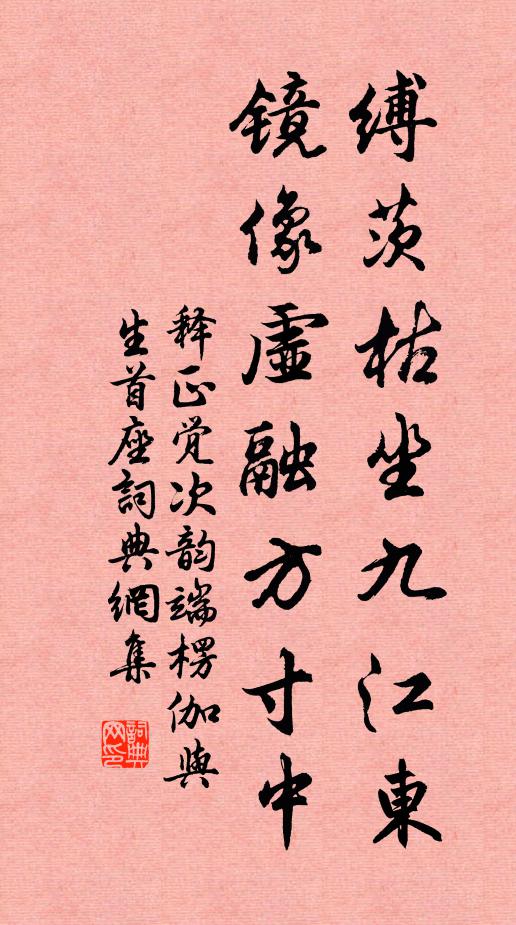 缚茨枯坐九江東
镜像虛融方寸中
释正觉次韵端楞伽與
生首座詞典網集
詞典网印